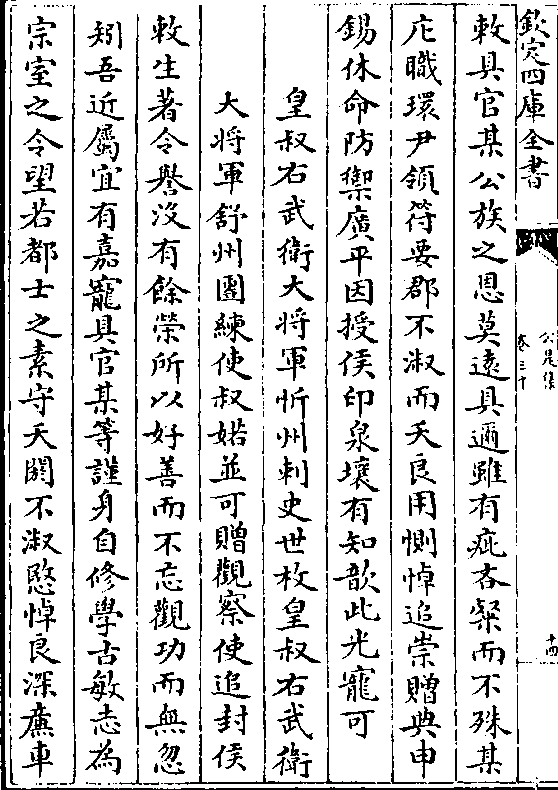 欽定四庫全書
公是集
卷三十
十四
敕具官某公族之恩莫遠具邇雖有疵吝粲而不殊某
庀職環尹領符要郡不淑而夭良用惻悼追崇贈典申
錫休命防禦廣平因授侯印泉壤有知歆此光寵可
皇叔右武衛大將軍忻州刺史世枚皇叔右武衛
大將軍舒州團練使叔婼並可贈觀察使追封侯
敕生著令譽沒有餘榮所以好善而不忘觀功而無忽
矧吾近屬宜有嘉寵具官某等謹身自修學古敏志為
宗室之令望若都士之素守夭閼不淑愍悼良深廉車